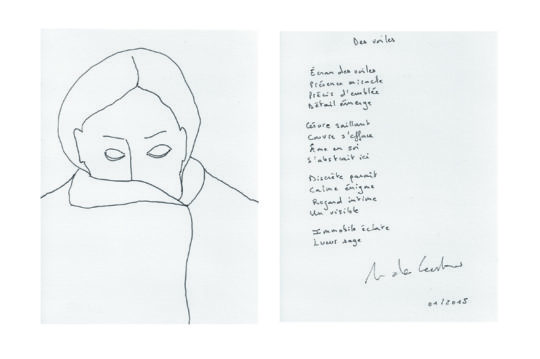 Des voiles
Écran des voiles
Présence miracle
Précis d'emblée
Détail émerge
Césure saillant
Couvre s'efface
Âme en soi
S'abstrait ici
Discrète paraît
Calme énigme
Regard intime
Un visible
Immobile éclate
Lueur sage
01/2015